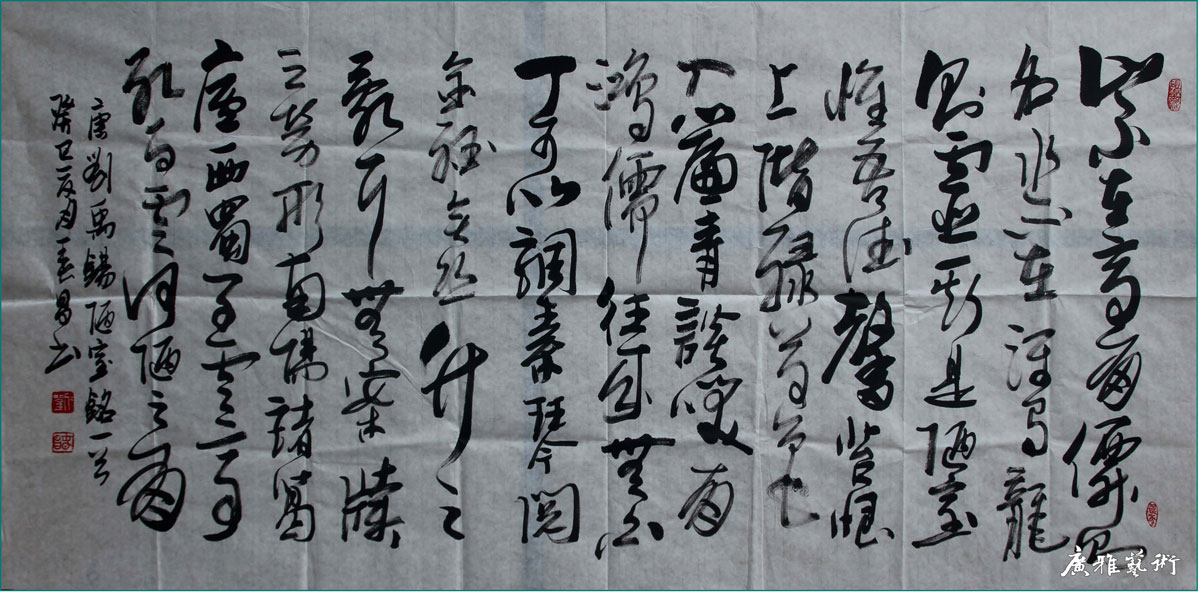 山不在高有僊則
名水不在深有龍
則靈斯是陋室
惟吾德馨苔痕
上階綠草色
入簾青談笑有
鴻儒往來無白
丁可以調素琴閱
金經無絲竹之
亂耳無案牘
之勞形南陽諸葛
廬西蜀子雲亭
孔子云何陋之有
唐劉禹錫陋室銘一首
癸巳夏月昌书
廣雅藝術